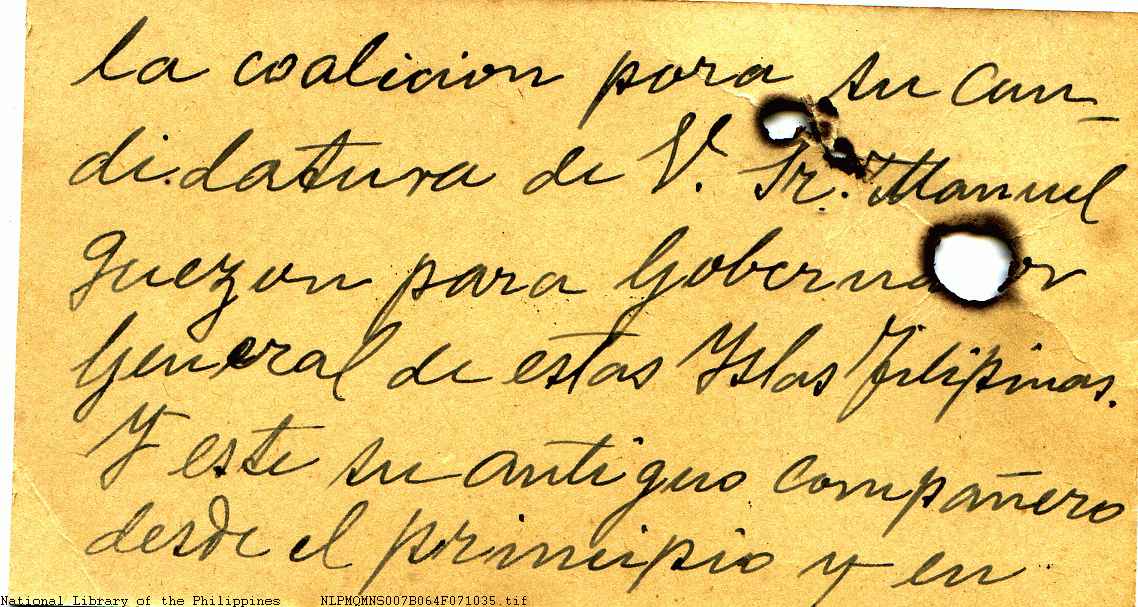 la coalicion para su can-
didatura de V. Sr. Manuel
Quezon para Gobernador
General de estas Yslas Filipinas.
Y este su antiguo compañero
desde el principio y en
National Library of the Philippines NLPMQMNS007B064F071035.tif